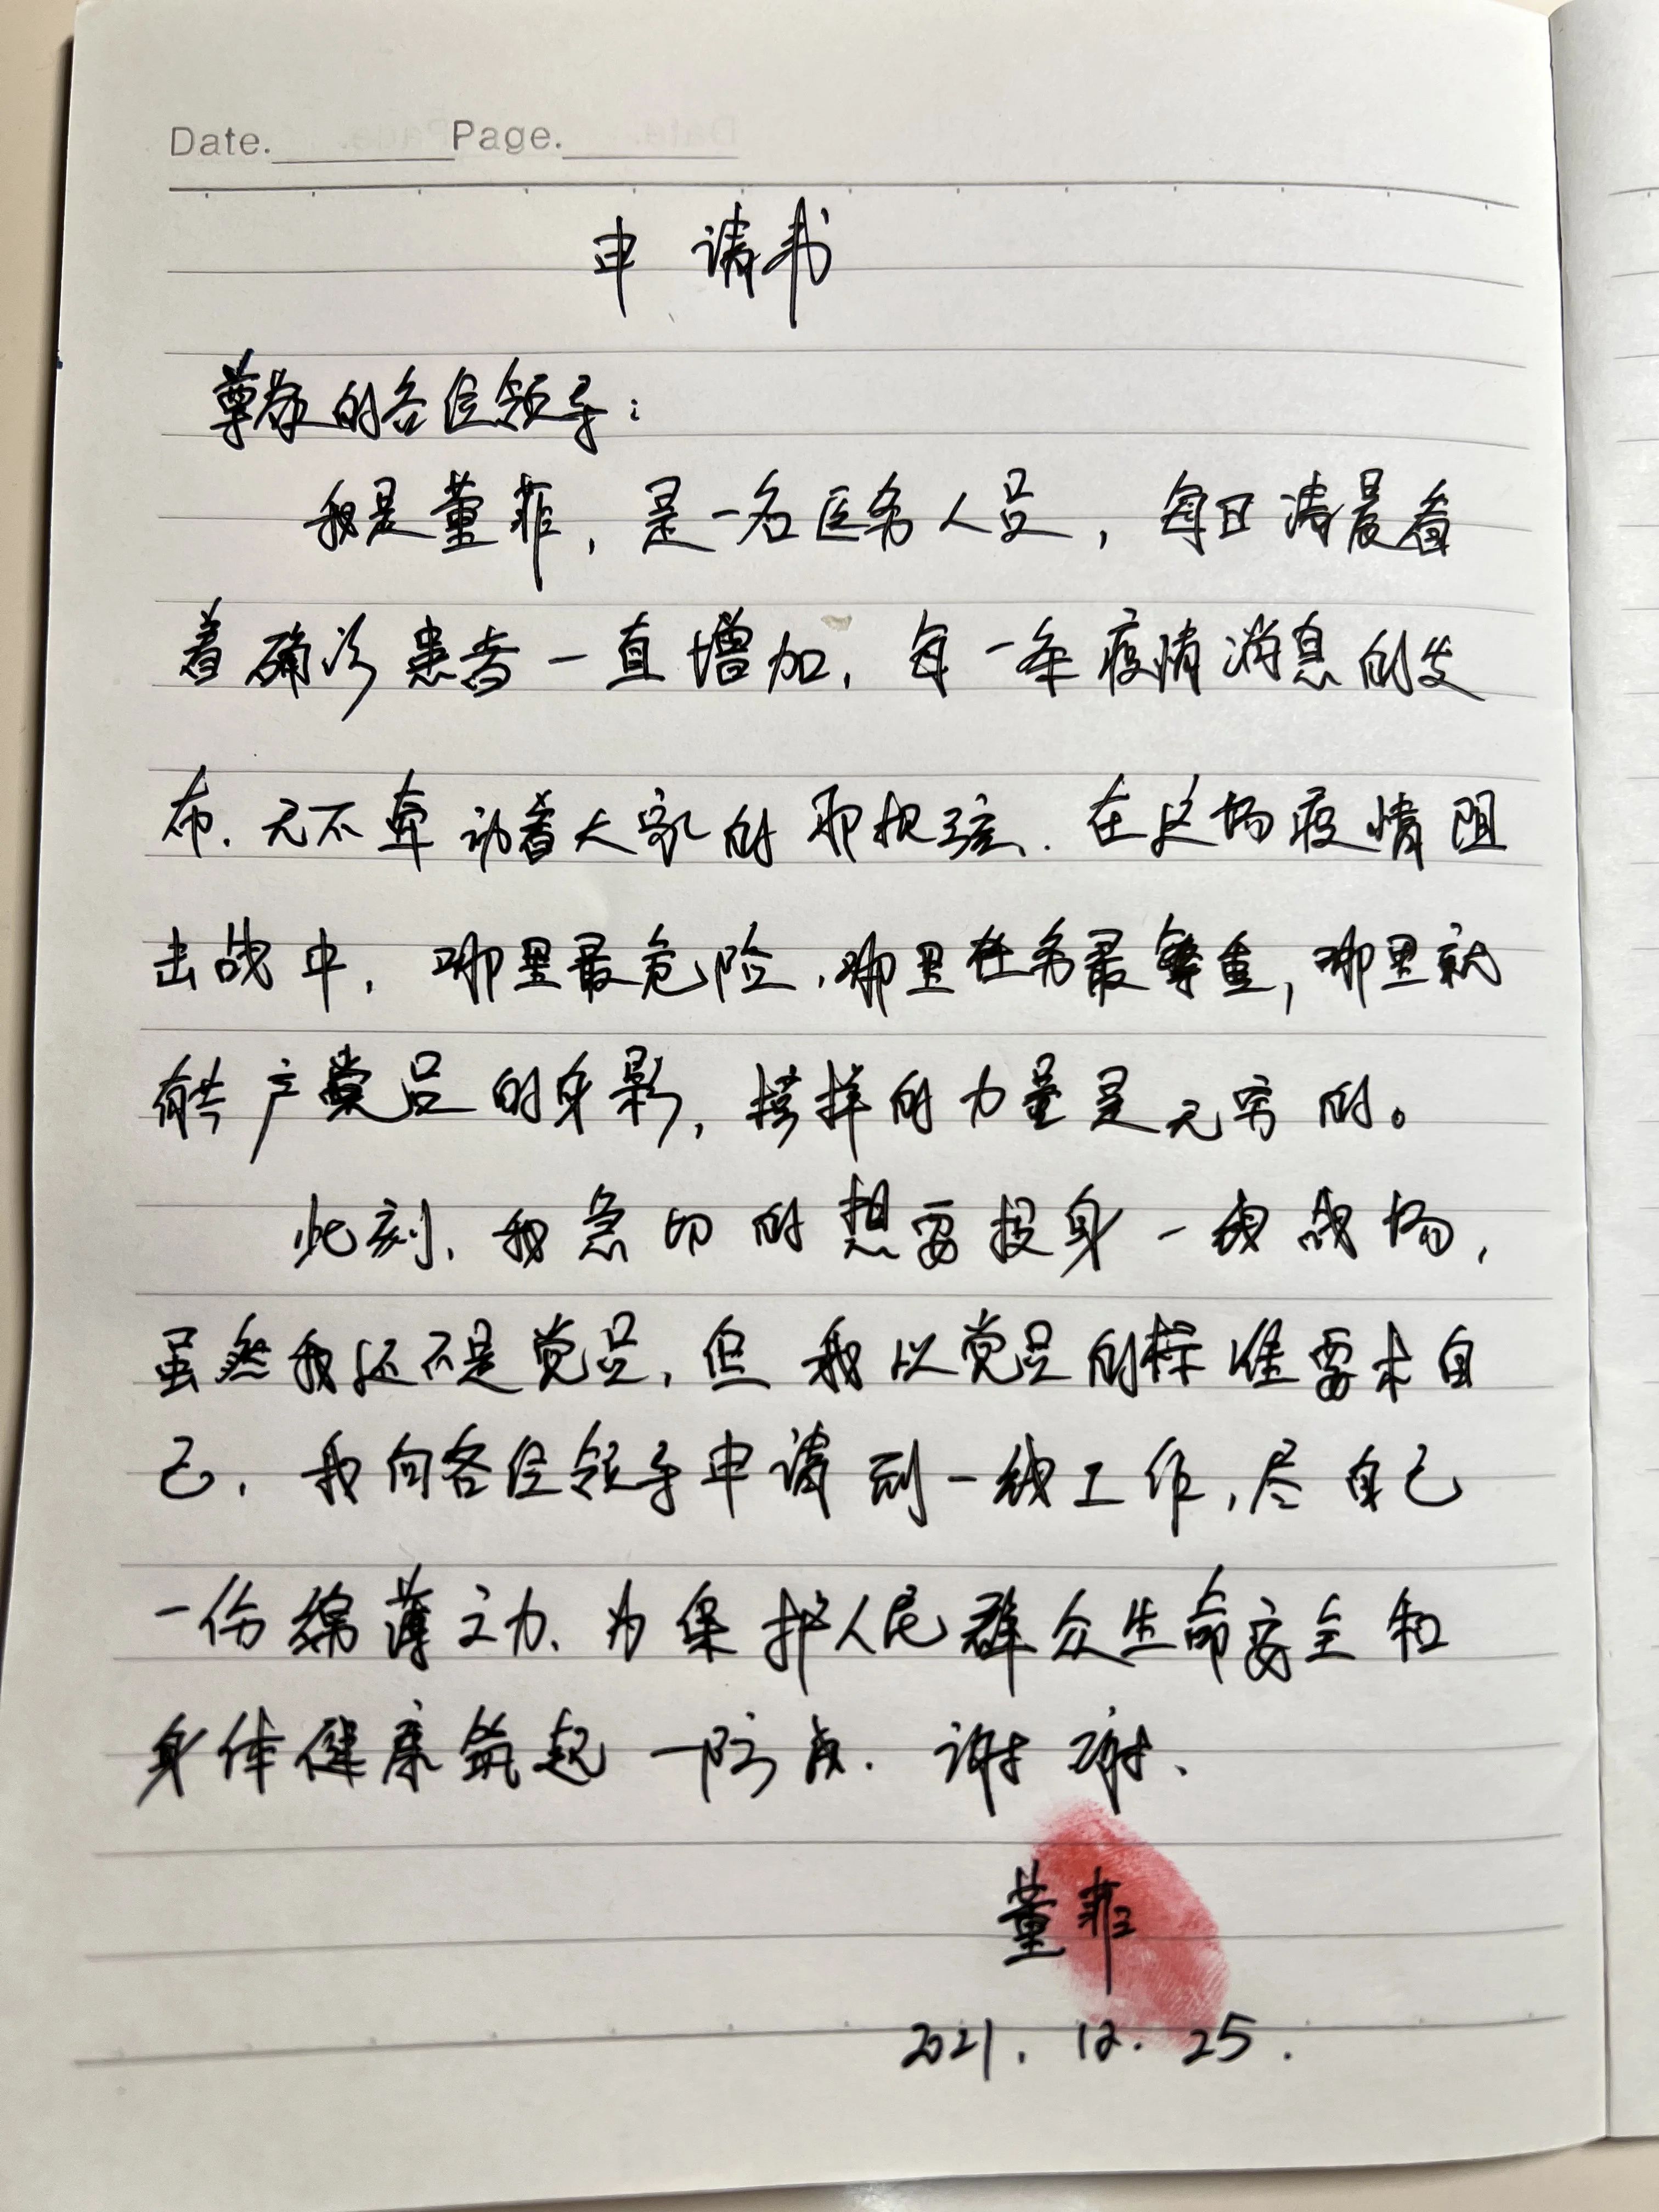 Date. Page.
申请书
尊敬的各位领导：
我是董菲，是一名医务人员，每日清晨看
着确诊患者一直增加，每一条疫情消息的发
布，无不牵动着大家的那根弦．在这场疫情阻
击战中，哪里最危险，哪里任务最繁重，哪里就
有共产党员的身影，榜样的力量是无穷的。
此刻，我急切的想要投身一线战场，
虽然我还不是党员，但我以党员的标准要求自
己，我向各位领导申请到一线工作，尽自己
一份绵薄之力、为保护人民群众生命安全和
身体健康筑起一防线．谢谢、
董菲
2021.12.25.